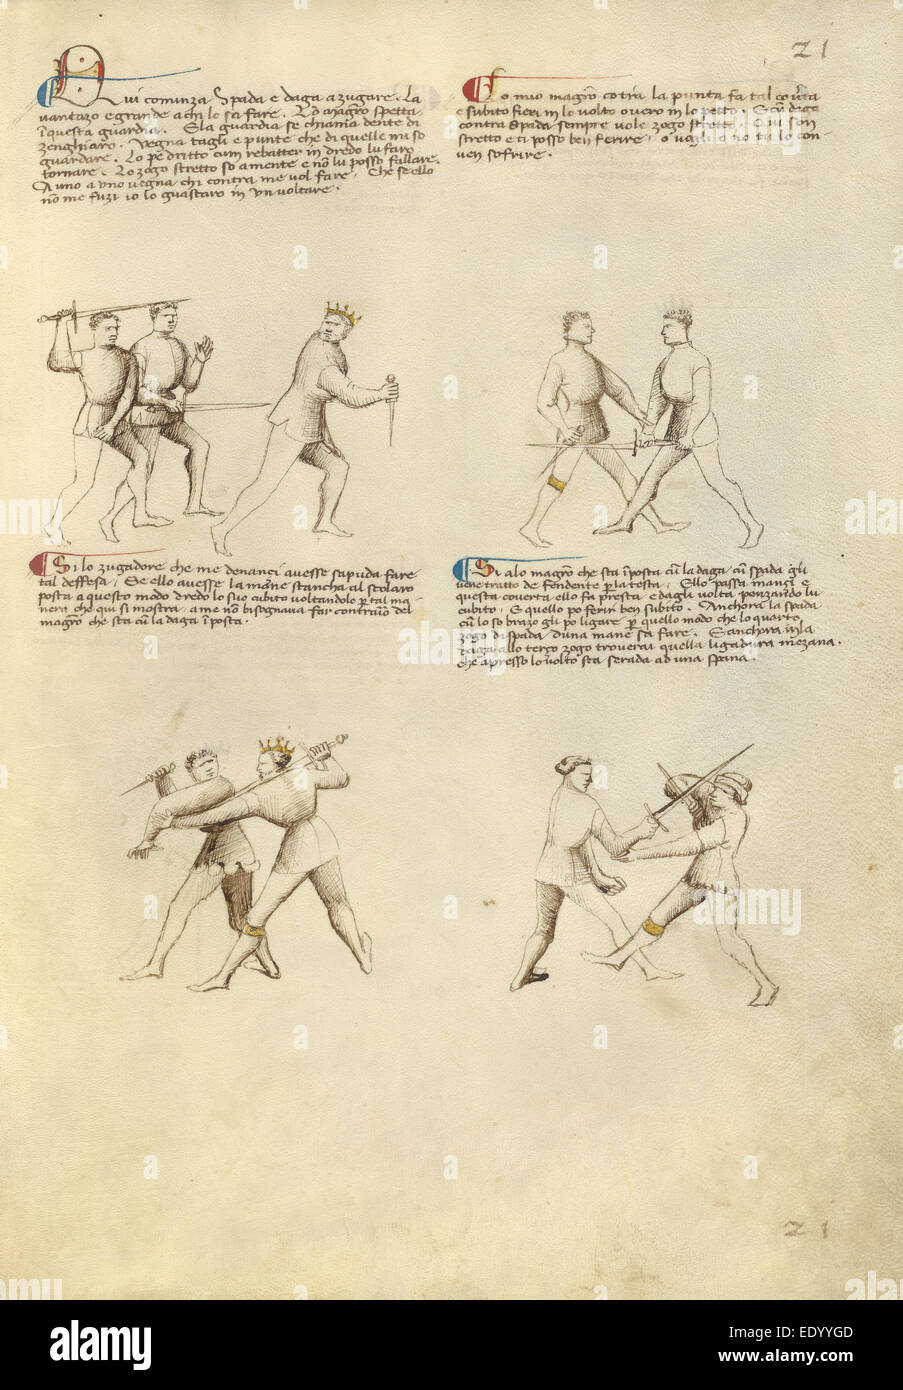 21
Qui cominza Spada e daga a zugare. La
vantazo e grande a chi lo sa fare. Lo magro spetta
in questa guardia. E la guardia se chiama dente di
zenghiaro. Vegna tagli e punte che di quelle mi so
guardare. Lo pe dritto cum rebatter in dredo lu faro
tornare. Lo zogo stretto so a mente e no lu posso fallare.
A uno a uno vegna chi contra me vol fare. Che se ello
no me fuzi io lo guastaro in un voltare.
Eo mio magro contra la punta fa tal coverta
e subito fieri in lo volto overo in lo petto. E cum daga
contra spada sempre vole zogo stretto. E qui son
stretto e ti posso ben ferire, o vogli o no tu lo con
ven soffrire.
Si lo zugadore che me denanci avesse sapuda fare
tal deffesa, Se ello avesse la mane stancha al scolaro
posta a questo modo dredo lo suo cubito voltandolo per tal ma
nera che qui si mostra, a me non bisognava far contrario del
magro che sta cum la daga in posta.
Si a lo magro che sta in posta cum la daga cum spada gli
vene tratto de fendente per la testa, Ello passa inanci e
questa coverta ello fa presta e dagli volta penzando lu
cubito, E quello po ferir ben subito. Anchora la spada
cum lo so brazo gli po ligare per quello modo che lo quarto
zogo di spada d una mane sa fare. E anchora in la
daga allo terço zogo troverai quella ligadura mezana.
che apresso lo volto sta serada ad una spana.
21
alamy
Image ID: EDYYGD
www.alamy.com